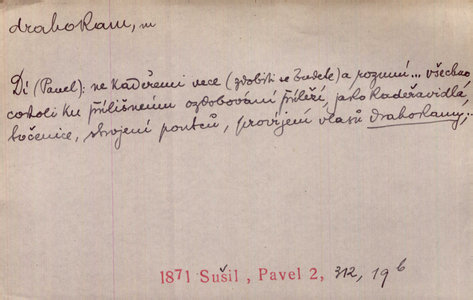 drahokam, m
Dí (Pavel): ne kadeřemi vece (zdobiti se budete) a rozumí... všechno
cokoli ku přílišnému ozdobování přileží, jako kadeřavidlá,
točenice, strojení pontců, províjení vlasů drahokamy,..
1871 Sušil, Pavel 2, 312, 19 b